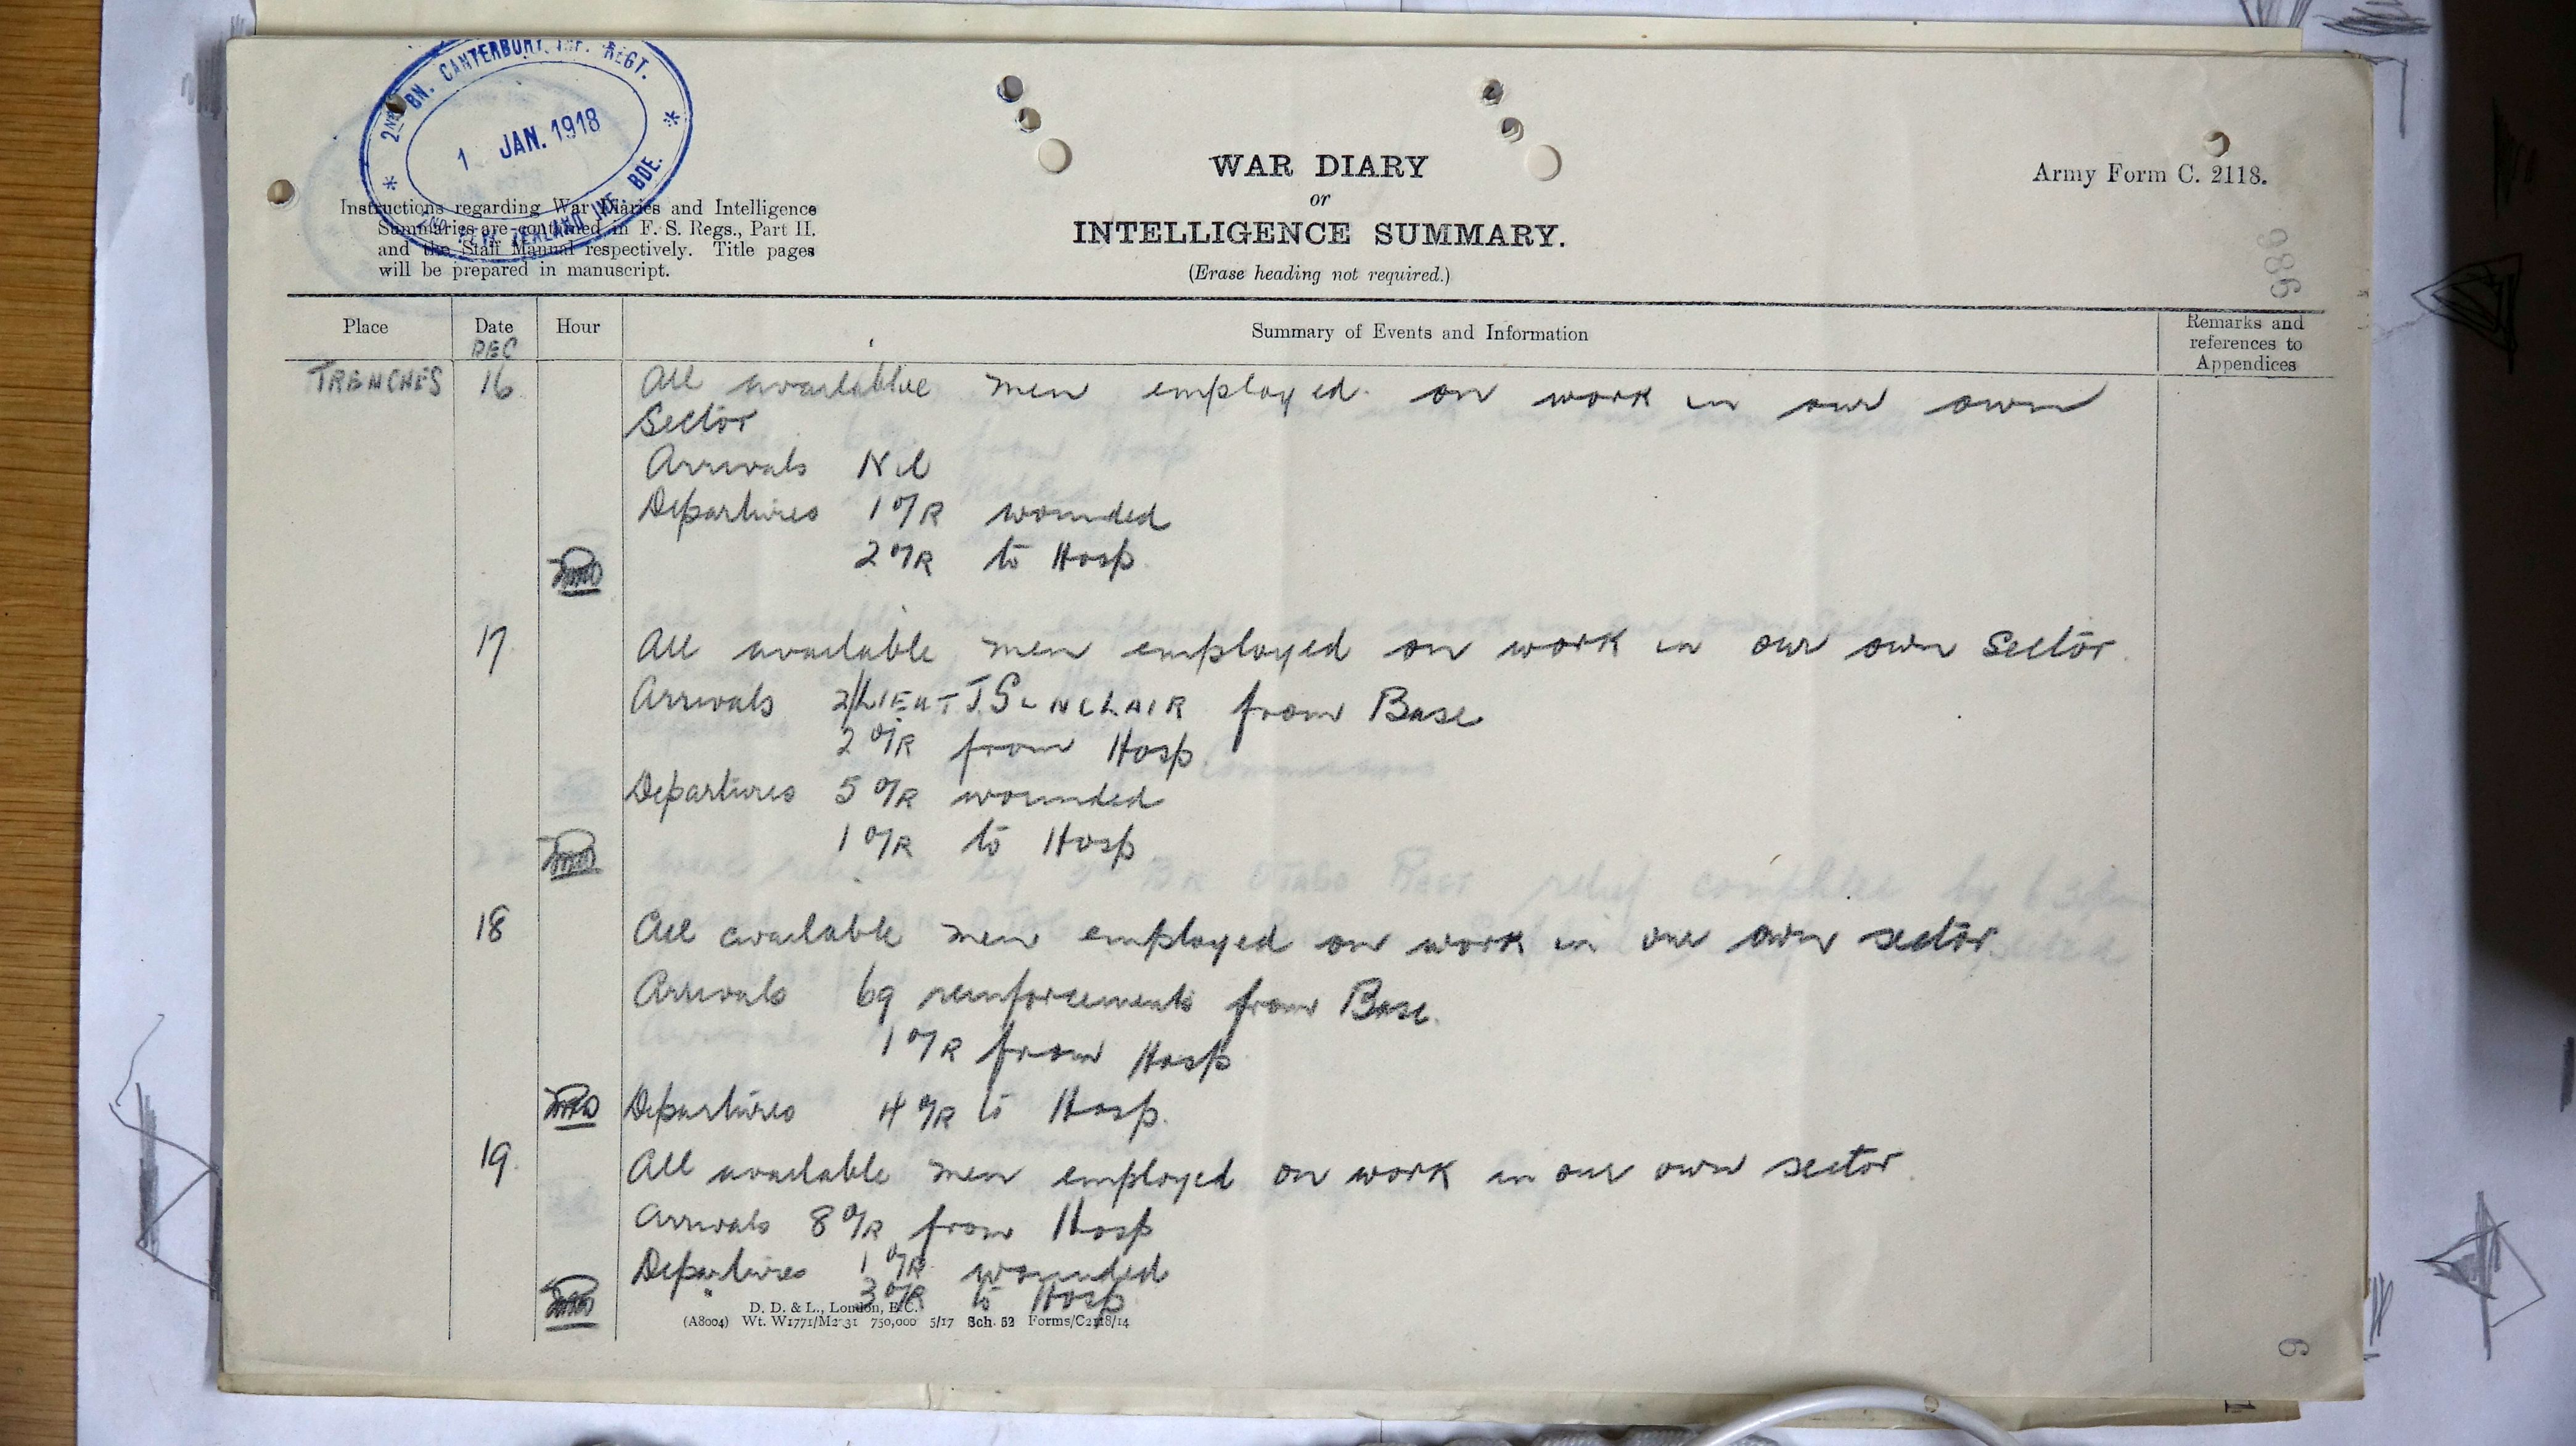 2ND BN. CANTERBURY INF. REGT.
1 JAN. 1918
2ND NEW ZEALAND INF. BDE.
Instructions regarding War Diaries and Intelligence
Summaries are contained in F. S. Regs., Part II.
and the Staff Manual respectively. Title pages
will be prepared in manuscript.
WAR DIARY
or
INTELLIGENCE SUMMARY.
(Erase heading not required.)
Army Form C. 2118.
986
Place Date Hour Summary of Events and Information Remarks and references to Appendices
DEC
TRENCHES 16 All available men employed on work in our own
Sector
Arrivals Nil
Departures 1 O/R wounded
2 O/R to Hosp
17 All available men employed on work in our own Sector
Arrivals 2/LIEUT J. SINCLAIR from Base
2 O/R from Hosp
Departures 5 O/R wounded
1 O/R to Hosp
18 All available men employed on work in our own sector
Arrivals 69 reinforcements from Base.
1 O/R from Hosp
Departures 4 O/R to Hosp.
19. All available men employed on work in our own sector.
Arrivals 8 O/R from Hosp
Departures 1 O/R wounded
" 3 O/R to Hosp
D. D. & L., London, E.C.
(A8004) Wt. W1771/M2 31 750,000 5/17 Sch. 52 Forms/C2118/14